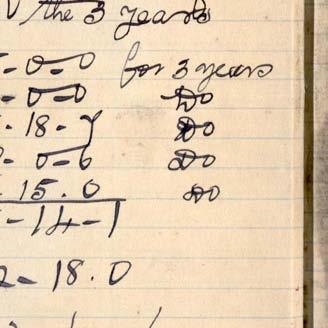 the 3 years
-0-0 for 3 years
-0-0 Do
. 18-7 Do
- 0-6 Do
15.0 Do
-14-1
- 18.0